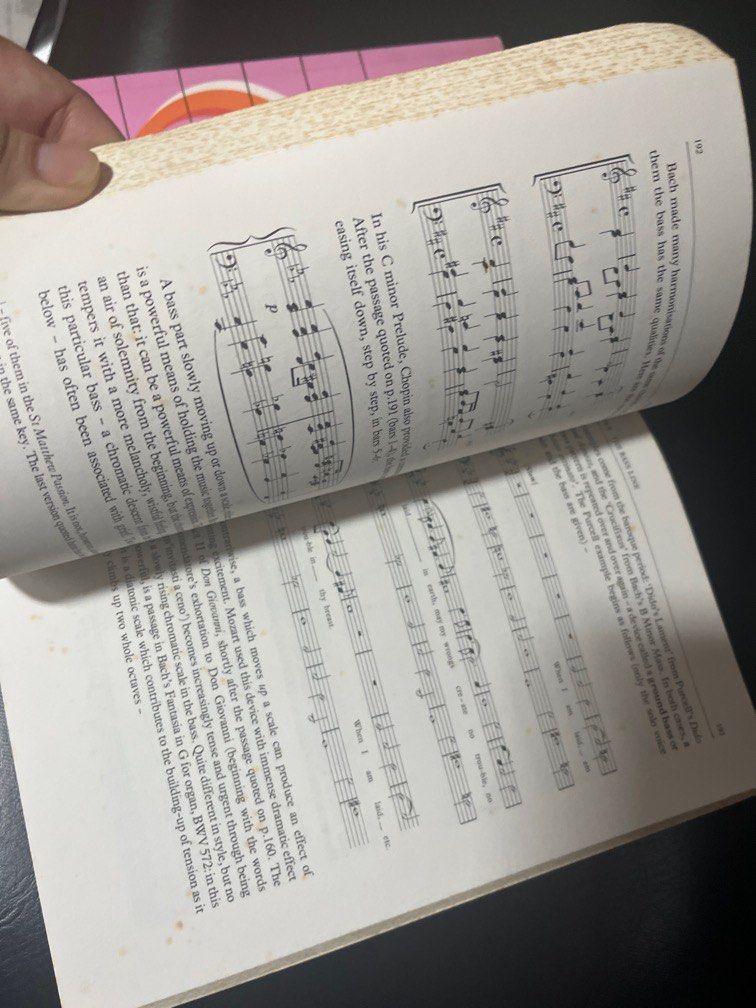 192
Bach made many harmonisations of the
them the bass has the same qualities.
In his C minor Prelude, Chopin also provided
After the passage quoted on p.191 (bars 1-4)
easing itself down, step by step, in bars 5-6:
p
A bass part slowly moving up or down a scale
is a powerful means of holding the music together
than that: it can be a powerful means of
an air of solemnity from the beginning, but the
tempers it with a more melancholy, wistful
this particular bass – a chromatic descent
below – has often been associated with
– five of them in the St Matthew Passion. It is not
in the same key. The last version quoted
193
THE BASS LINE
come from the baroque period: 'Dido's Lament' from Purcell's Dido
and the 'Crucifixus' from Bach's B Minor Mass. In both cases, a
pattern is repeated over and over again – a device called a ground bass or
The Purcell example begins as follows (only the solo voice
and the bass are given) –
When I am laid, am
laid in earth, may my wrongs cre-ate no trou-ble, no
trou-ble in thy breast. When I am laid, etc.
a bass which moves up a scale can produce an effect of
excitement. Mozart used this device with immense dramatic effect
Don Giovanni, shortly after the passage quoted on p.160. The
exhortation to Don Giovanni (beginning with the words
a ceno') becomes increasingly tense and urgent through being
slowly rising chromatic scale in the bass. Quite different in style, but no
powerful, is a passage in Bach's Fantasia in G for organ, BWV 572: in this
is a diatonic scale which contributes to the building-up of tension as it
climbs up two whole octaves –